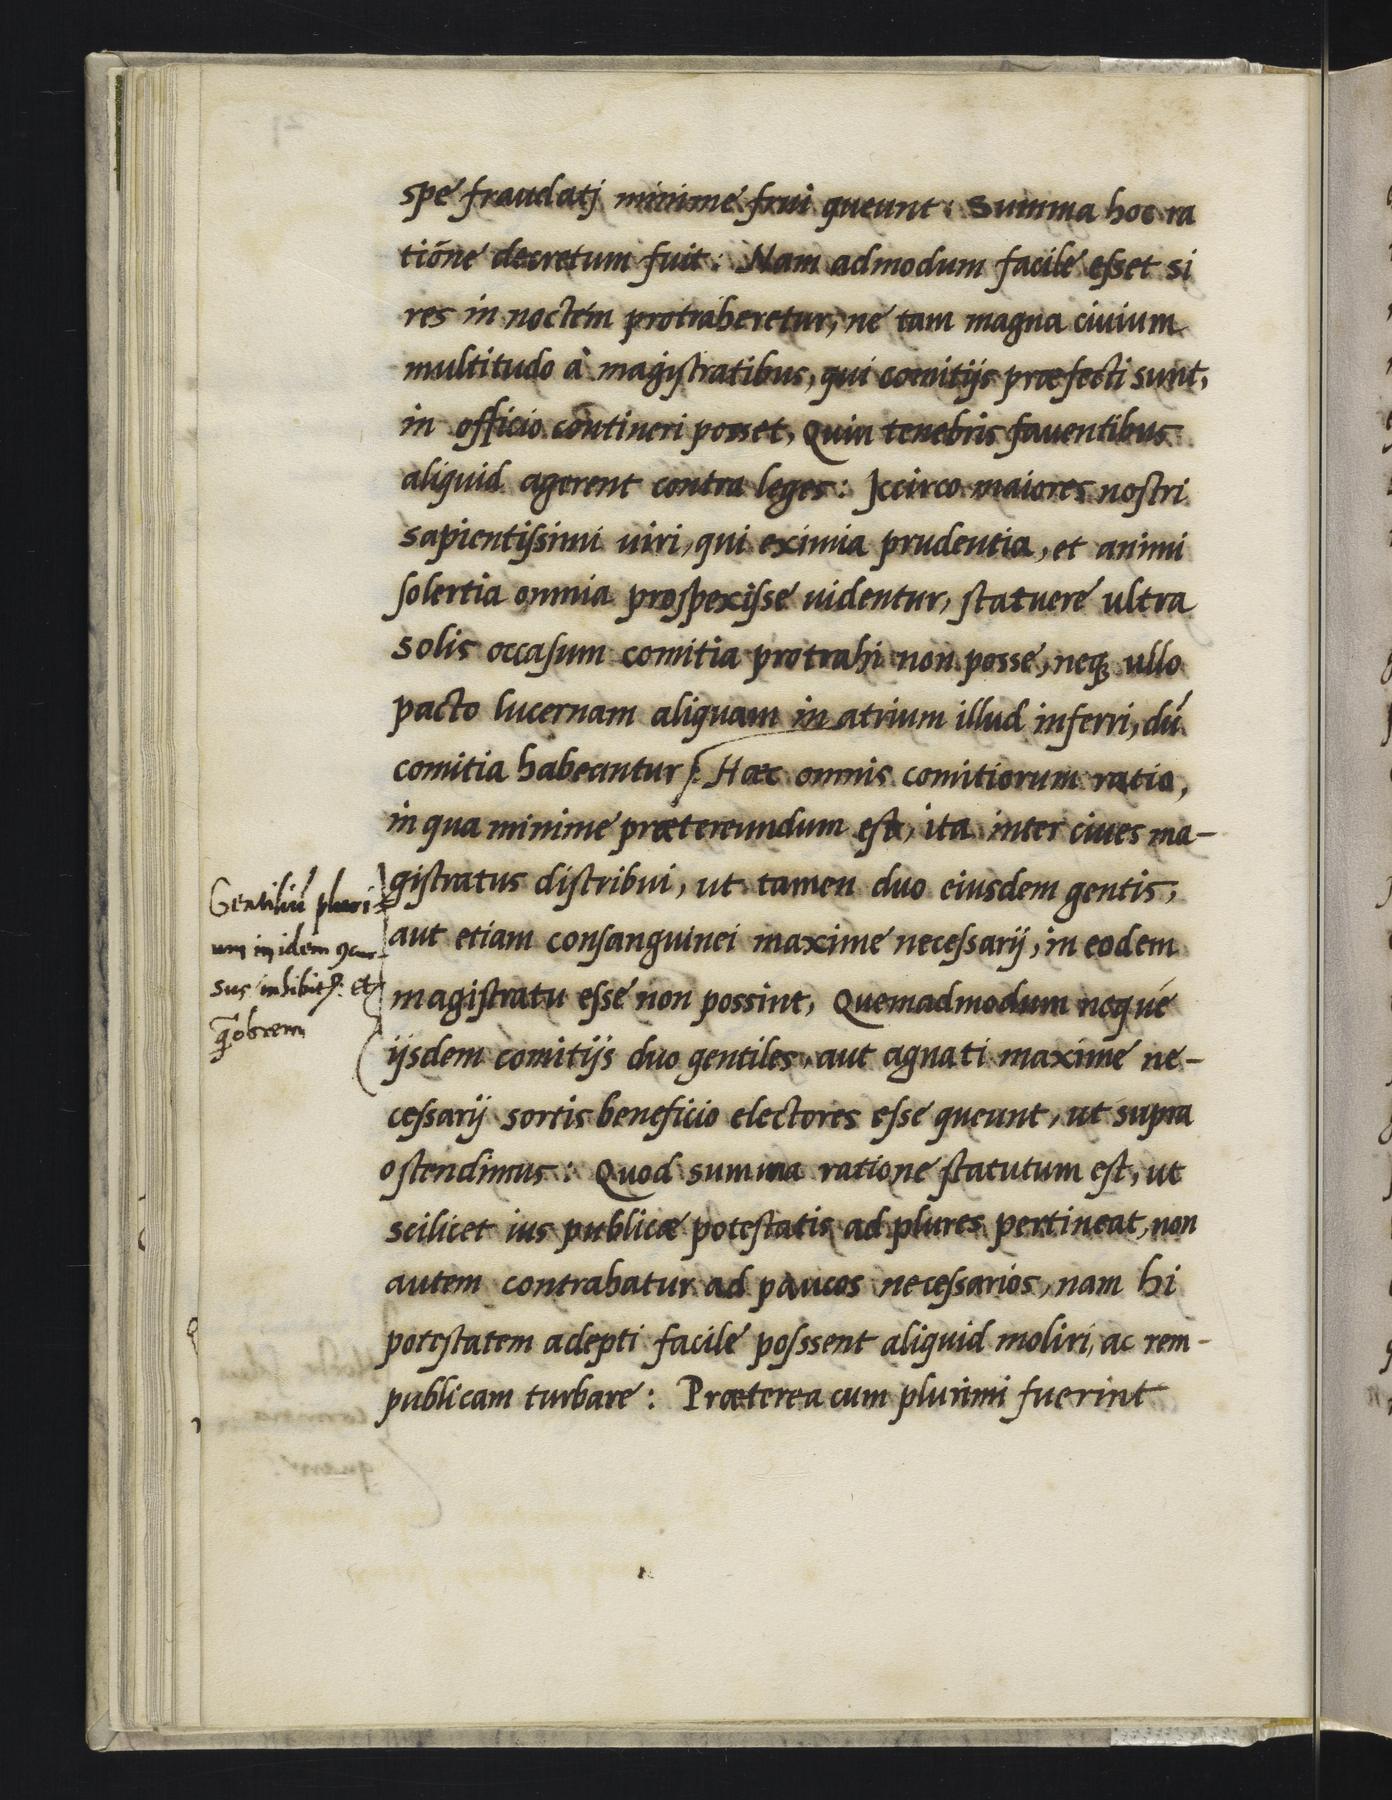 spe fraudatj minime frui queunt: Summa hoc ra
tióne decretum fuit: Nam admodum facile esset si
res in noctem protraheretur, ne tam magna ciuium
multitudo à magistratibus, qui comitijs præfecti sunt,
in officio contineri posset, Quin tenebris fauentibus
aliquid agerent contra leges: Iccirco maiores nostri
sapientissimi uiri, qui eximia prudentia, et animi
solertia omnia prospexisse uidentur, statuere ultra
solis occasum comitia protrahi non posse, neq; ullo
pacto lucernam aliquam in atrium illud inferri, dú
comitia habeantur: Hæc omnis comitiorum ratio,
in qua minime prætereundum est, ita inter ciues ma-
gistratus distribui, ut tamen duo eiusdem gentis,
aut etiam consanguinei maxime necessarij, in eodem
magistratu esse non possint, Quemadmodum neque
ijsdem comitijs duo gentiles, aut agnati maxime ne-
cessarij sortis beneficio electores esse queunt, ut supra
ostendimus: Quod summa ratione statutum est, ut
scilicet ius publicæ potestatis ad plures pertineat, non
autem contrahatur ad paucos necessarios, nam hi
potestatem adepti facile posssent aliquid moliri, ac rem-
publicam turbare: Præterea cum plurimi fuerint
Gentiliú pluri-
um in idem
sus inhibit: et